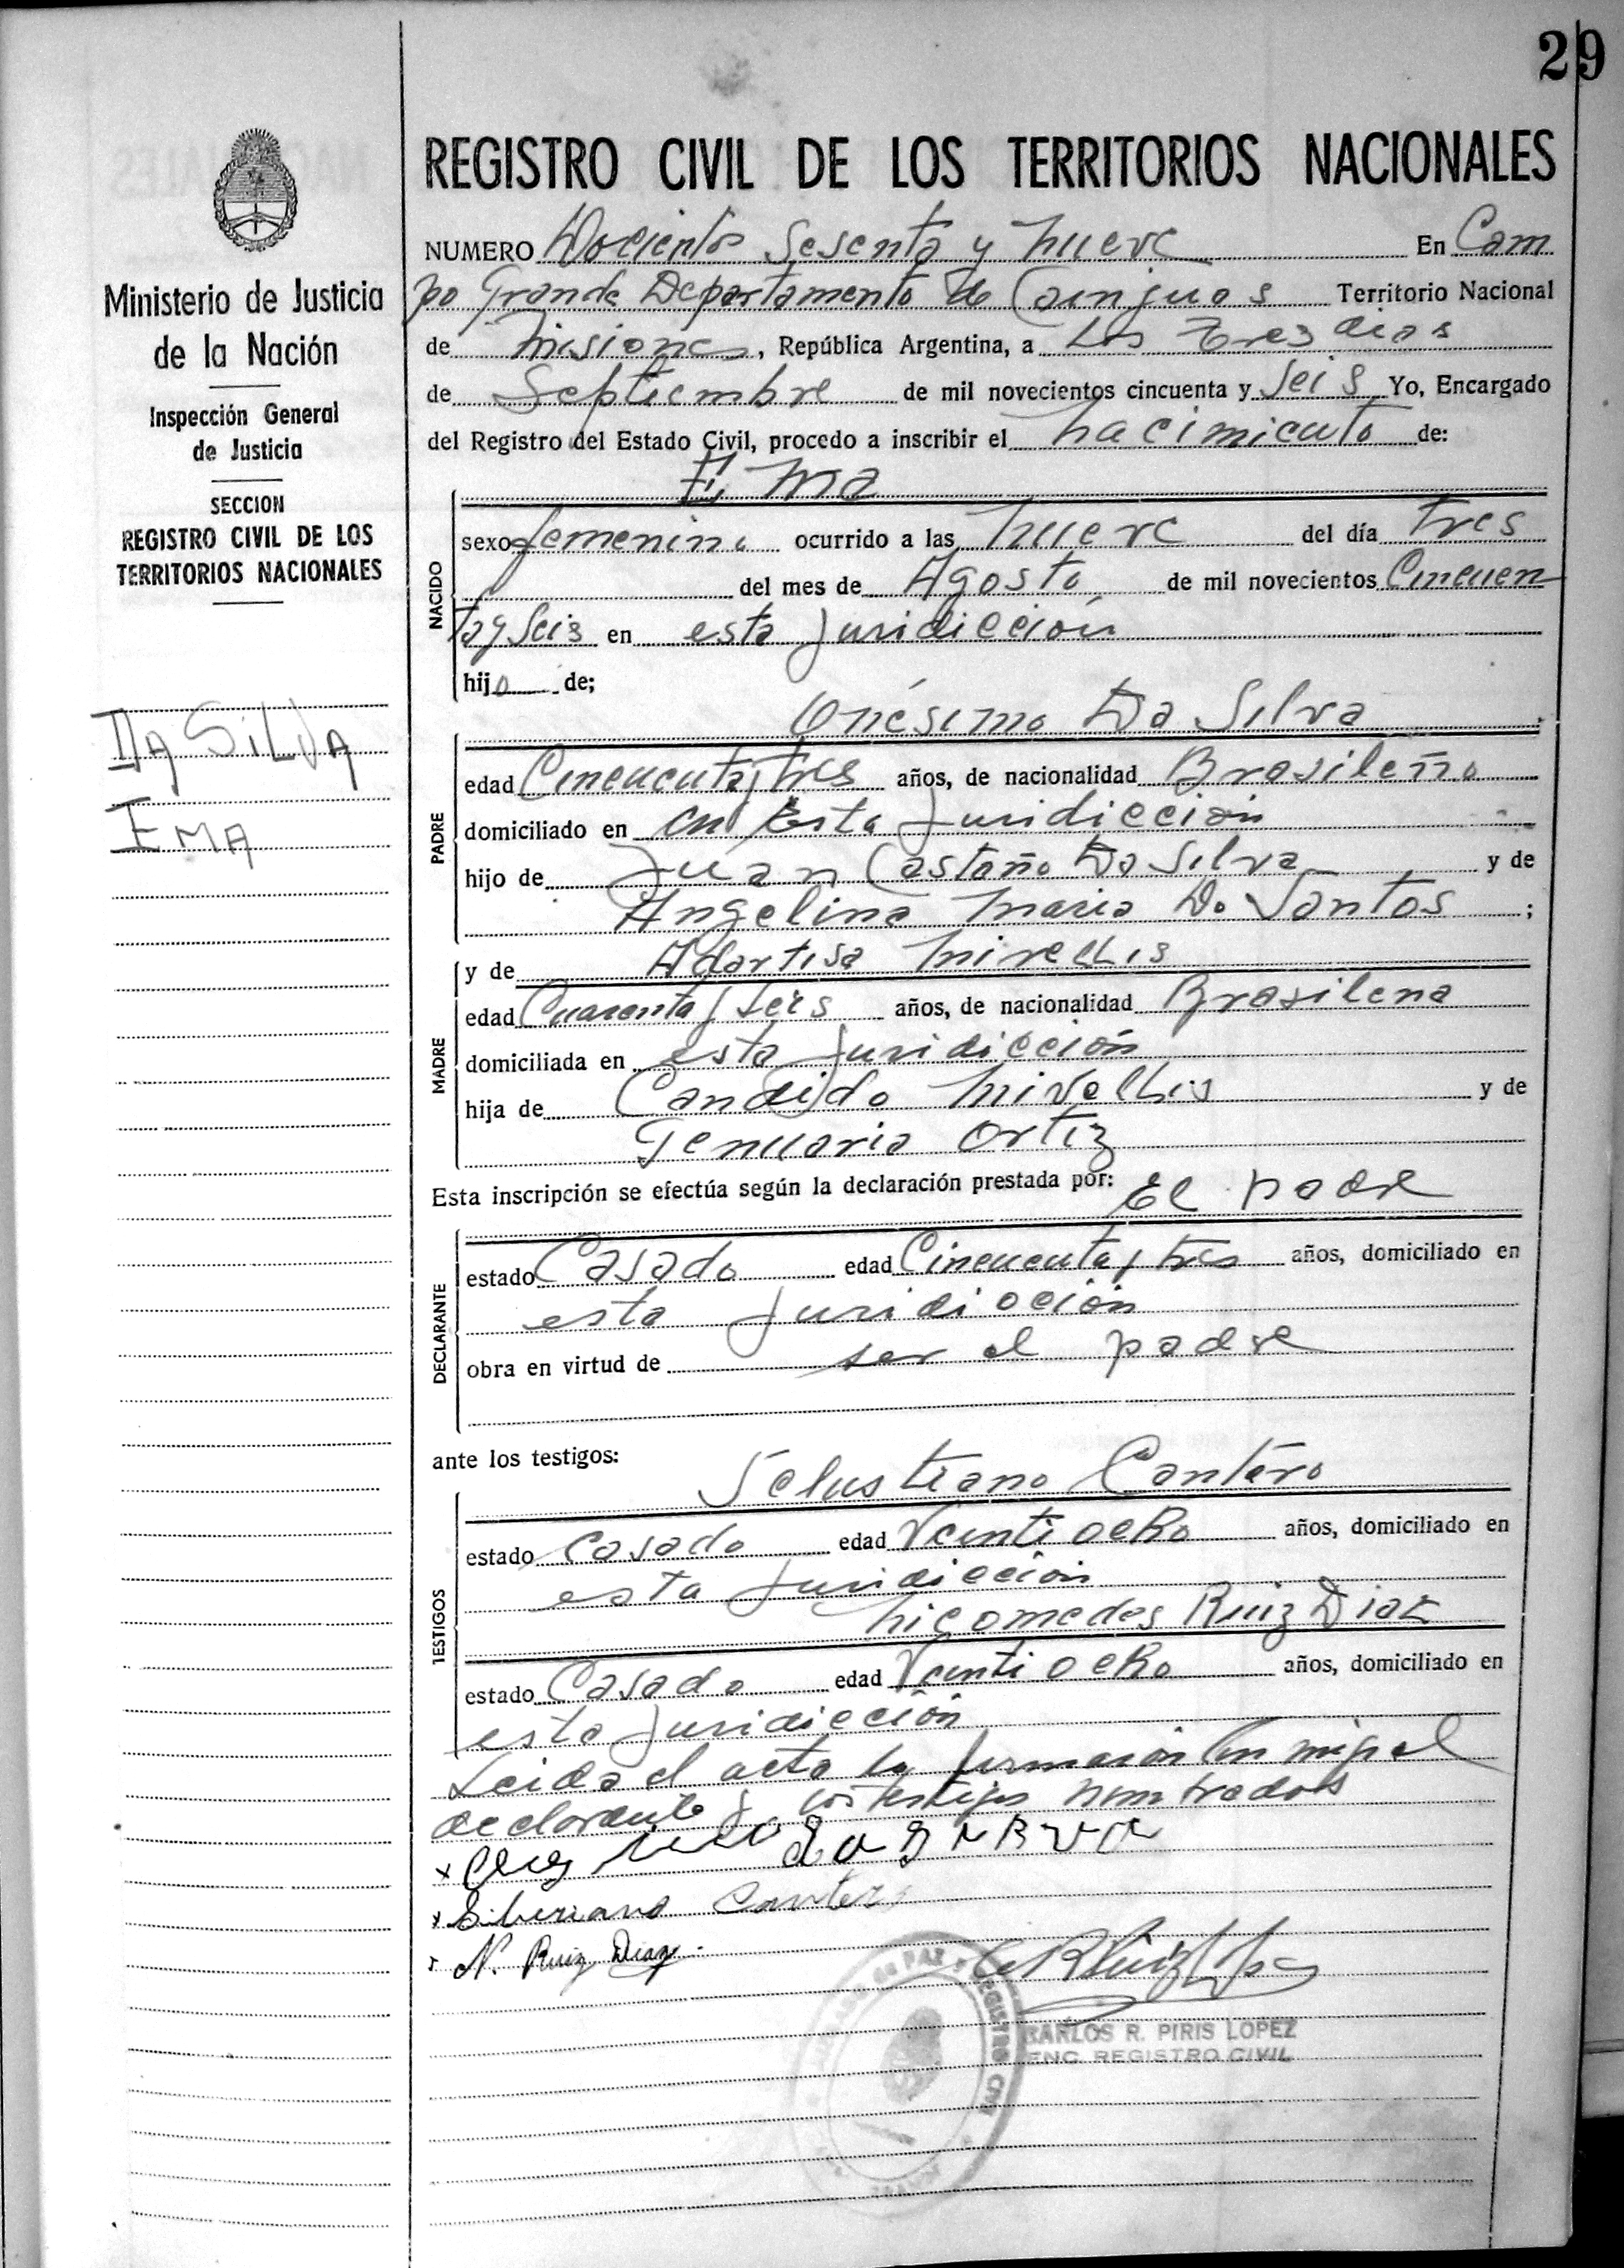 29
REGISTRO CIVIL DE LOS TERRITORIOS NACIONALES
Ministerio de Justicia
de la Nación
Inspección General
de Justicia
SECCION
REGISTRO CIVIL DE LOS
TERRITORIOS NACIONALES
DA SiLVA
EMA
NUMERO Docientos Sesenta y nueve En Cam
po Grande Departamento de Cainguas Territorio Nacional
de Misiones, República Argentina, a los tres dias
de Septiembre de mil novecientos cincuenta y Seis Yo, Encargado
del Registro del Estado Civil, procedo a inscribir el nacimiento de:
Ema
NACIDO
sexo femenino ocurrido a las nueve del día tres
del mes de Agosto de mil novecientos Cincuen
ta y Seis en esta Juridicción
hija de;
Onésimo Da Silva
PADRE
edad Cincuenta y tres años, de nacionalidad Brasileño
domiciliado en en Esta Juridicción
hijo de Juan Castaño Da Silva y de
Angelina Maria Do Santos ;
y de Adartisa
MADRE
edad Cuarenta y seis años, de nacionalidad Brasilena
domiciliada en esta Juridicción
hija de Candido y de
Genuaria Ortiz
Esta inscripción se efectúa según la declaración prestada por: El padre
DECLARANTE
estado Casado edad Cincuenta y tres años, domiciliado en
esta Juridicción
obra en virtud de ser el padre
ante los testigos:
Selustiano Cantero
TESTIGOS
estado Casado edad Veintiocho años, domiciliado en
esta Juridicción
Nicomedes Ruiz Diaz
estado Casado edad Veintiocho años, domiciliado en
esta Juridicción
Leida el acta la firmaron Conmigo el
declarante y los testigos nombrados
da
Cantero
N. Ruiz Diaz.
JUZGADO de PAZ y REGISTRO CIVIL
CARLOS R. PIRIS LOPEZ
ENC. REGISTRO CIVIL